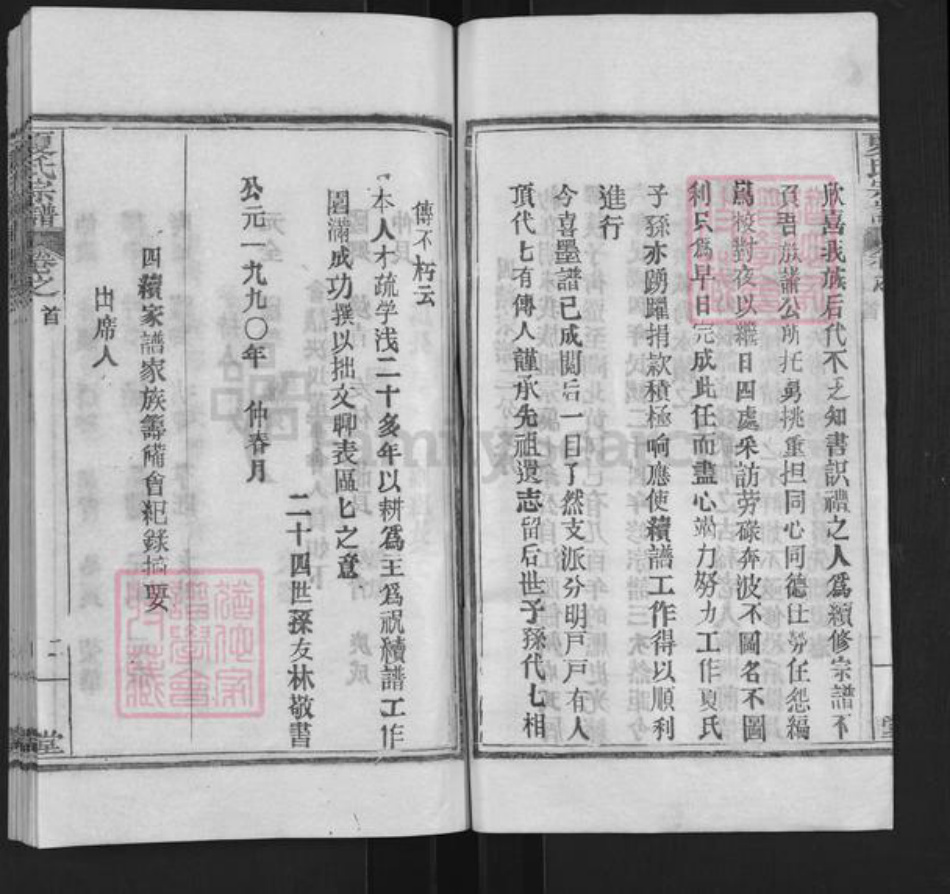 欣喜我族后代不乏知書識禮之人爲續修宗譜不
負吾族諸公所托勇挑重担同心同德任勞任怨編
寫校對夜以繼日四處采訪劳碌奔波不圖名不圖
利只爲早日完成此任而盡心竭力努力工作夏氏
子孫亦踴躍捐款積極响應使續譜工作得以順利
進行
今喜墨譜已成閱后一目了然支派分明戸戸有人
頂代七有傳人謹承先祖遺志留后世子孫代七相
夏氏宗譜 卷之首 二 堂
傳不朽云
本人才疏学浅二十多年以耕爲主爲祝續譜工作
圓满成功撰以拙文聊表區匕之意
二十四世孫友林敬書
公元一九九〇年 仲春月
四續家譜家族籌備會紀錄摘要
出席人